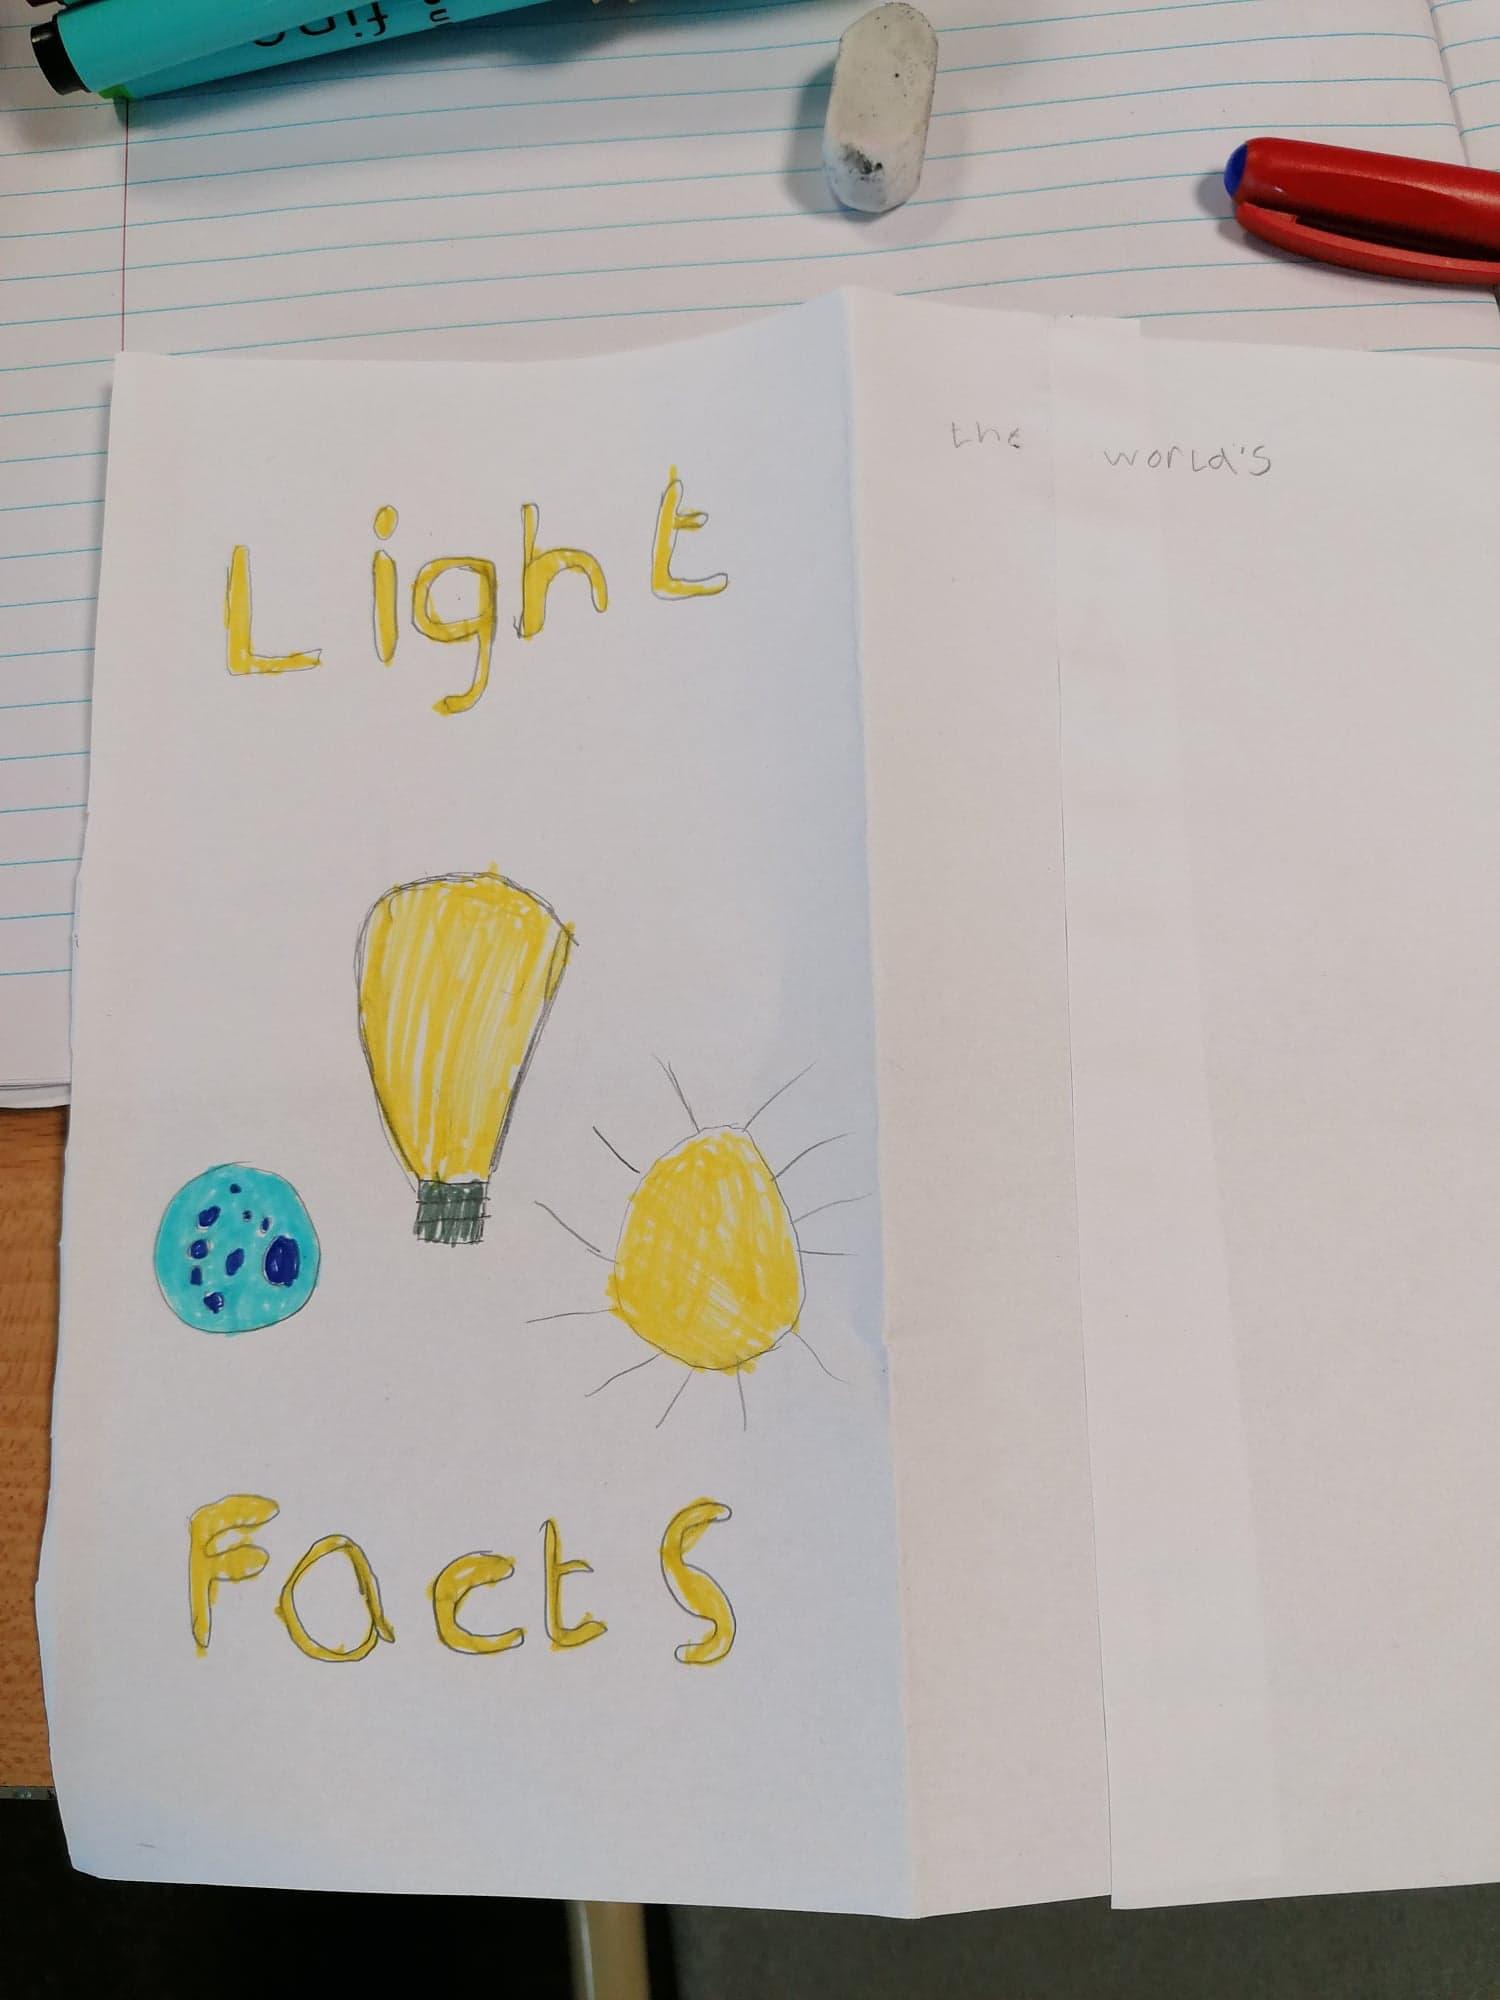 Light
Facts
the world's
fine